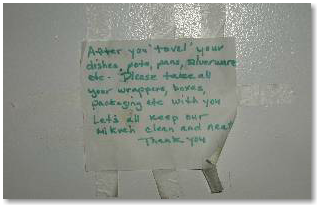 After you 'tovel' your
dishes, pots, pans, silverware
etc. Please take all
your wrappers, boxes,
packaging etc with you
Let's all keep our
Mikveh clean and neat
Thank you